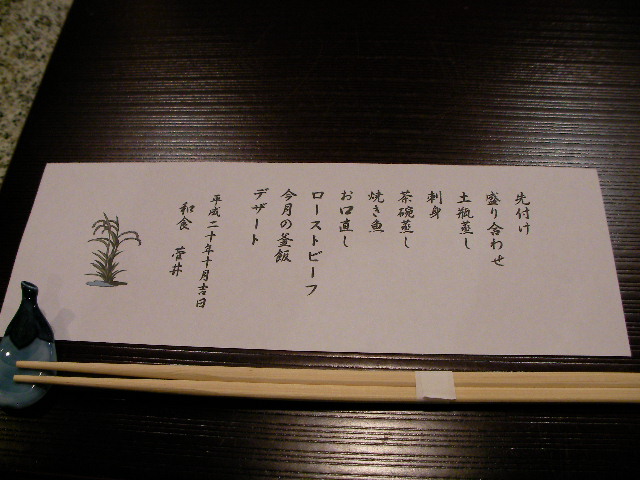 先付け
盛り合わせ
土瓶蒸し
刺身
茶碗蒸し
焼き魚
お口直し
ローストビーフ
今月の釜飯
デザート
平成二十年十月吉日
和食 菅井